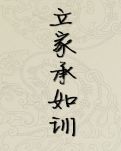 立家承如训